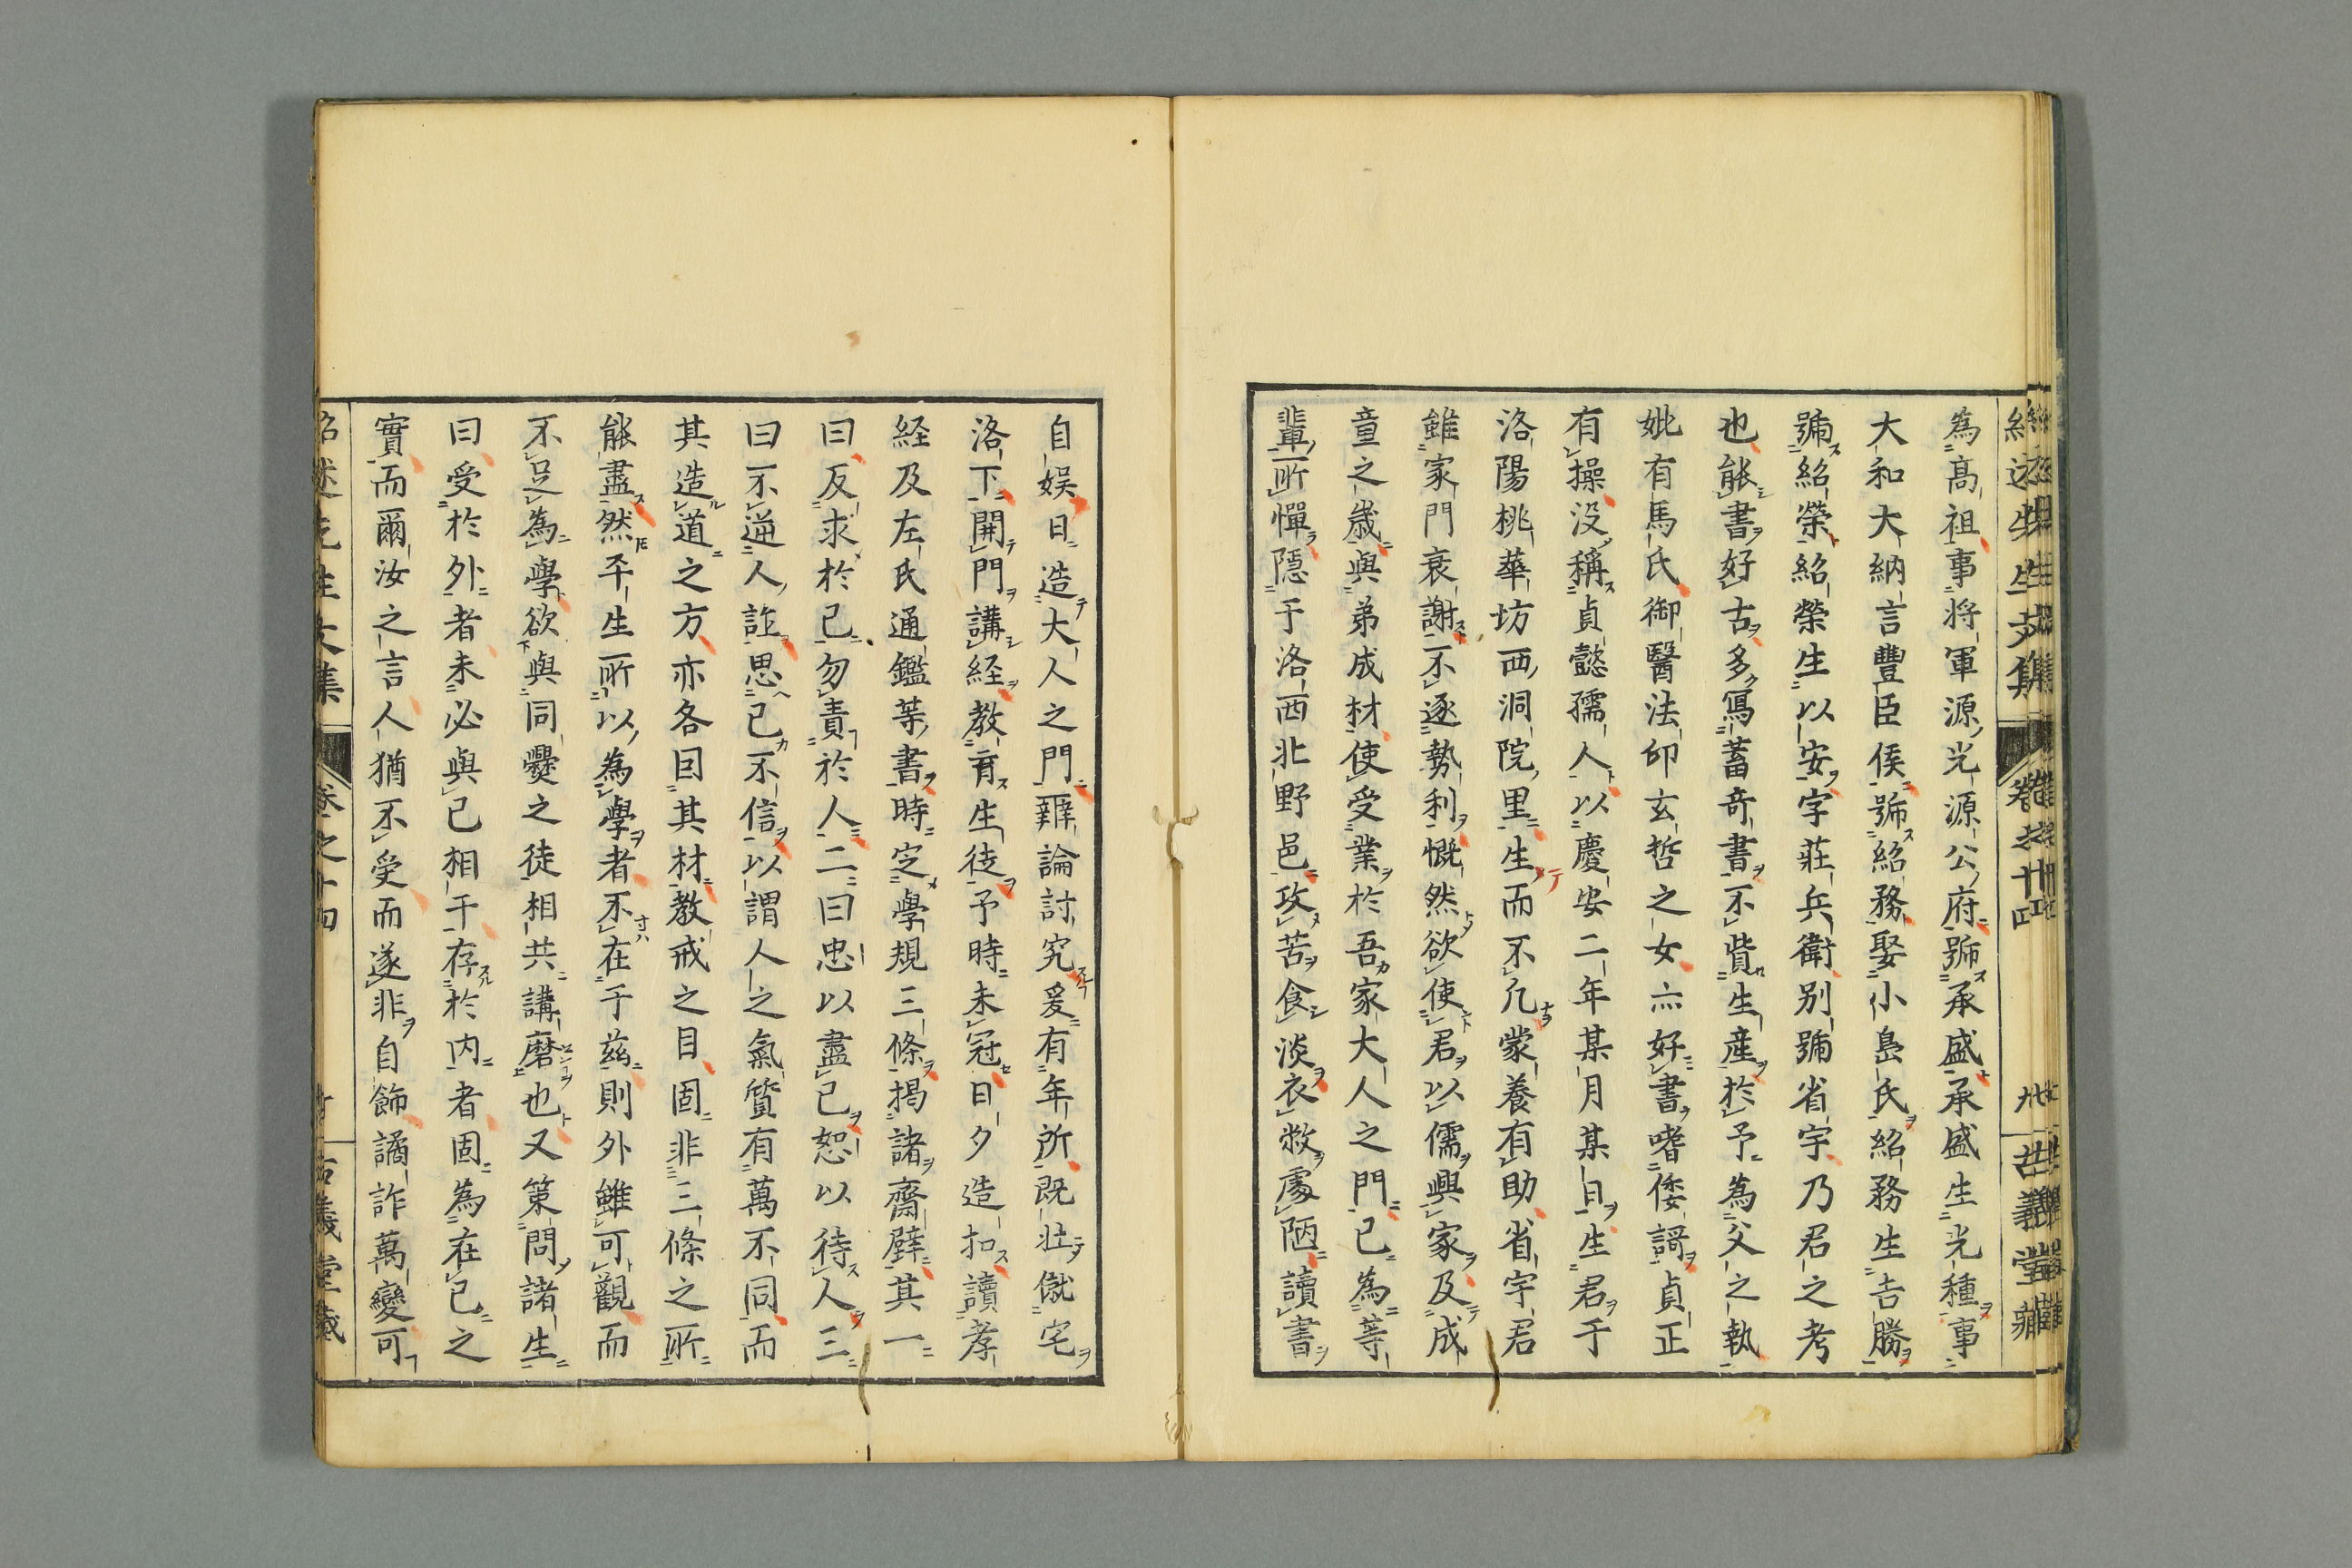 為高祖事将軍源光源公府號承盛承盛生光種事
大和大納言豐臣侯號紹務娶小島氏紹務生吉勝
號紹榮紹榮生以安字莊兵衛別號省宇乃君之考
也能書好古多寫蓄奇書不貲生産於予為父之執
妣有馬氏御醫法卬玄哲之女亦好書嗜倭謌貞正
有操没稱貞懿孺人以慶安二年某月某日生君于
洛陽桃華坊西洞院里生而不凢蒙養有助省宇君
雖家門衰謝不逐勢利慨然欲使君以儒興家及成
童之歳與弟成材使受業於吾家大人之門已為等
輩所憚隱于洛西北野邑攻苦食淡衣敝處陋讀書
自娱日造大人之門辨論討究爰有年所既壮僦宅
洛下開門講経教育生徒予時未冠日夕造扣讀孝
経及左氏通鑑等書時定學規三條揭諸齋壁其一
曰反求於己勿責於人二曰忠以盡己恕以待人三
曰不逆人詐思己不信以謂人之氣質有萬不同而
其造道之方亦各因其材教戒之目固非三條之所
能盡然平生所以為學者不在于茲則外雖可觀而
不足為學欲與同爨之徒相共講磨也又策問諸生
曰受於外者未必與己相干存於内者固為在己之
實而爾汝之言人猶不受而遂非自飾譎詐萬變可
紹述先生文集 卷之十四 古義堂藏